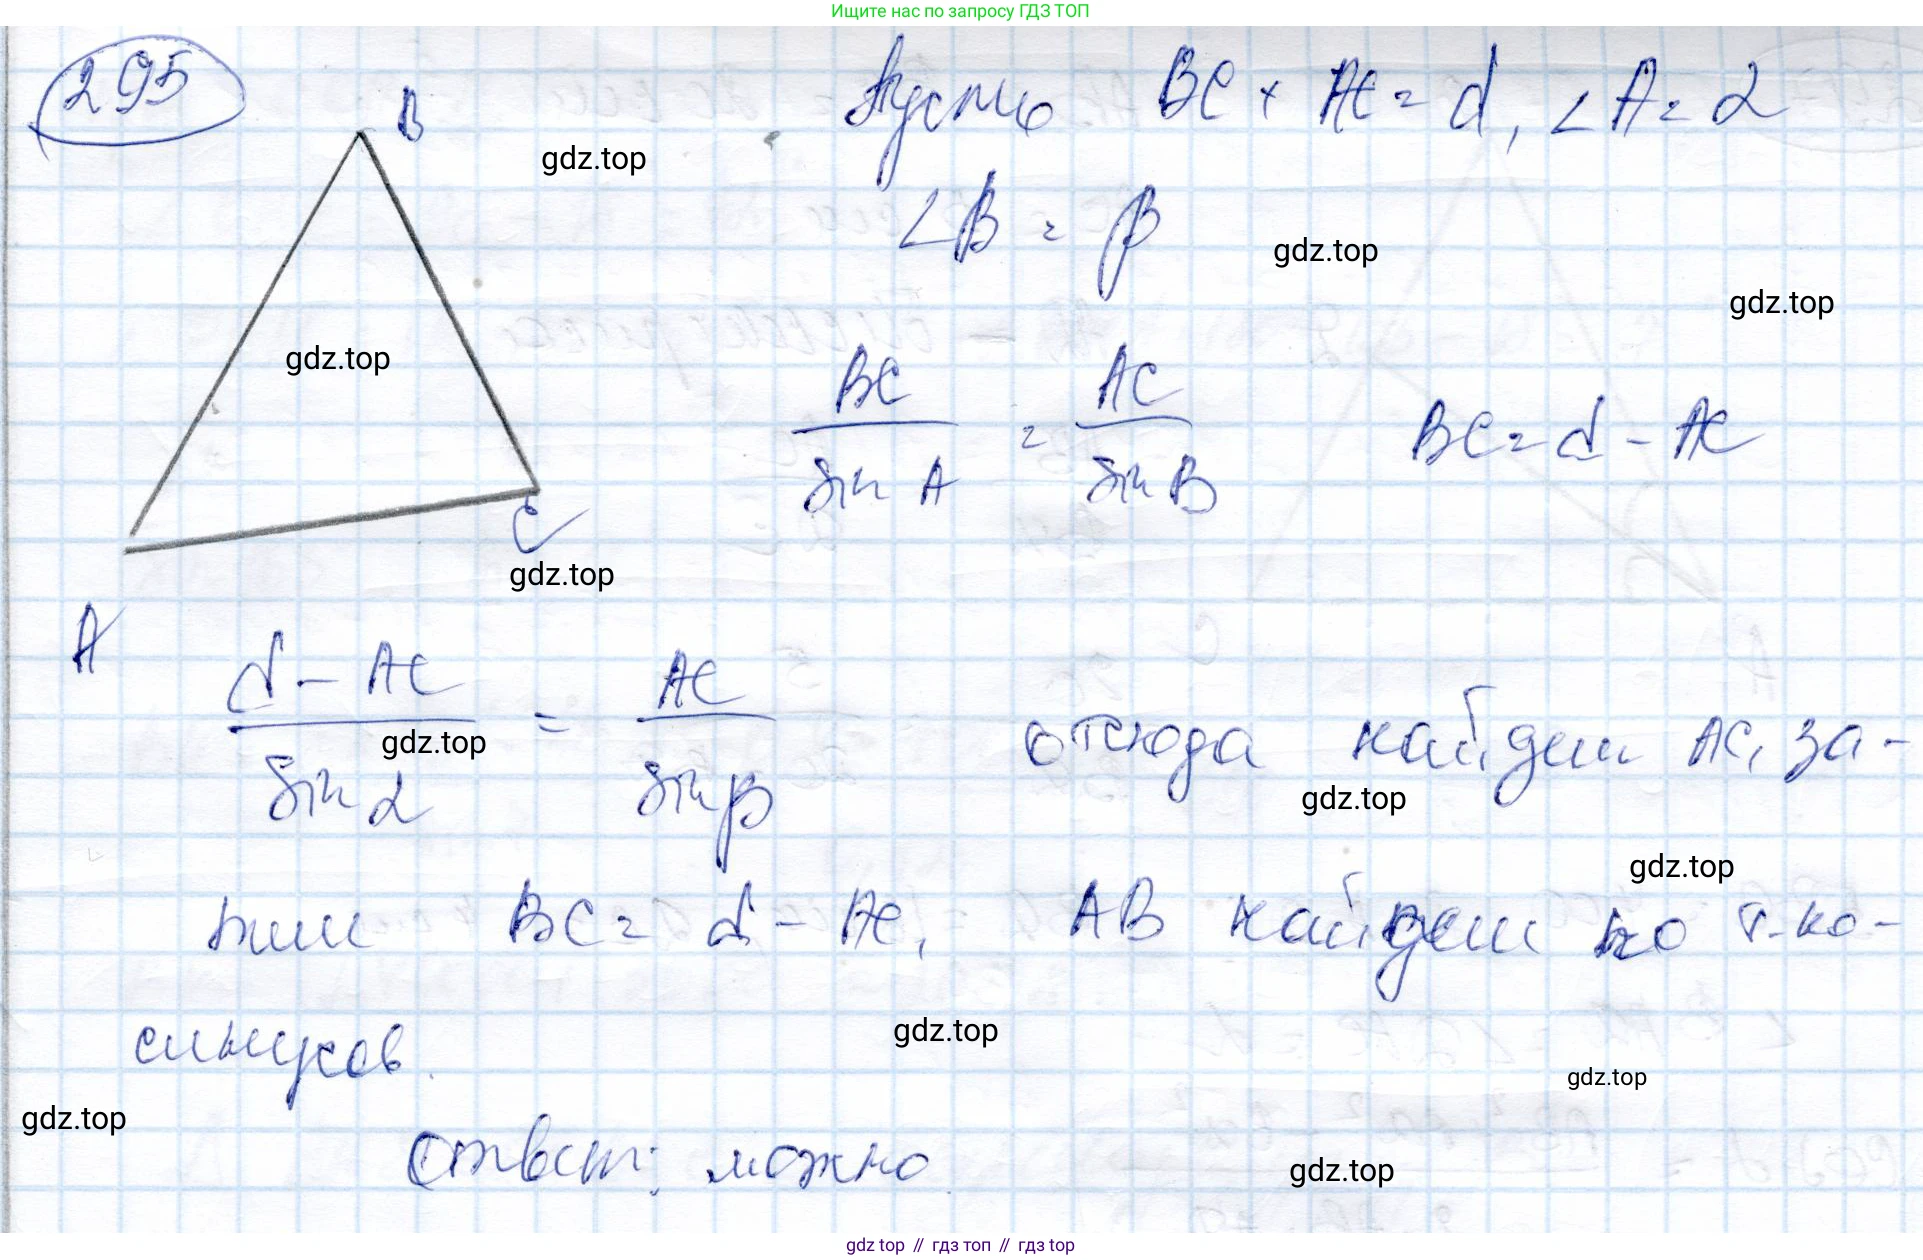 Ищите нас по запросу ГДЗ ТОП
295
B
Пусть BC + AC = d, ∠A = α
gdz.top
∠B = β
gdz.top
gdz.top
gdz.top
BC / sin A = AC / sin B BC = d - AC
C
gdz.top
A
d - AC / sin α = AC / sin β отсюда найдем AC, за-
gdz.top
gdz.top
gdz.top
тем BC = d - AC, AB найдем по т. ко-
синусов.
gdz.top
gdz.top
gdz.top
Ответ: можно
gdz.top
gdz top // гдз топ // гдз top